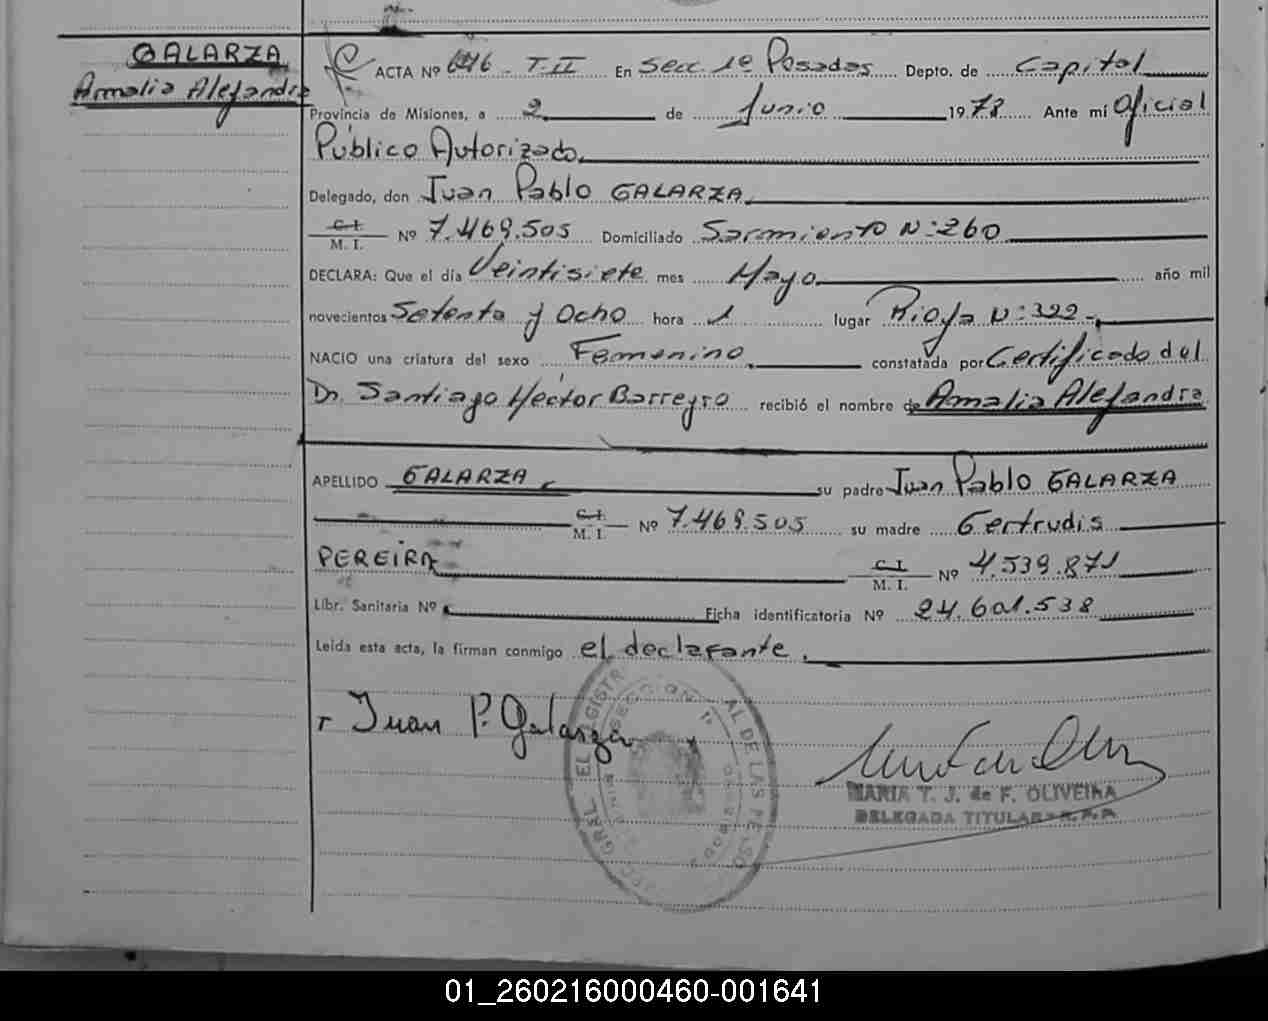 GALARZA
Amalia Alejandra
ACTA Nº 646 - T. II En Secc. 1º Posadas Depto. de Capital
Provincia de Misiones, a 2 de Junio 1978 Ante mí Oficial
Público Autorizado.
Delegado, don Juan Pablo GALARZA
C. I.
M. I. Nº 7.469.505 Domiciliado Sarmiento N: 260
DECLARA: Que el día Veintisiete mes Mayo año mil
novecientos Setenta y Ocho hora 1 lugar Rioja N: 322-
NACIO una criatura del sexo Femenino constatada por Certificado del
Dr. Santiago Héctor Barreyro recibió el nombre de Amalia Alejandra
APELLIDO GALARZA su padre Juan Pablo GALARZA
C. I.
M. I. Nº 7.469.505 su madre Gertrudis
PEREIRA C. I.
M. I. Nº 4.539.871
Libr. Sanitaria Nº Ficha identificatoria Nº 24.601.538
Leída esta acta, la firman conmigo el declarante.
Juan P. Galarza
MARIA T. J. de F. OLIVEIRA
DELEGADA TITULAR - R.P.P.
01_260216000460-001641